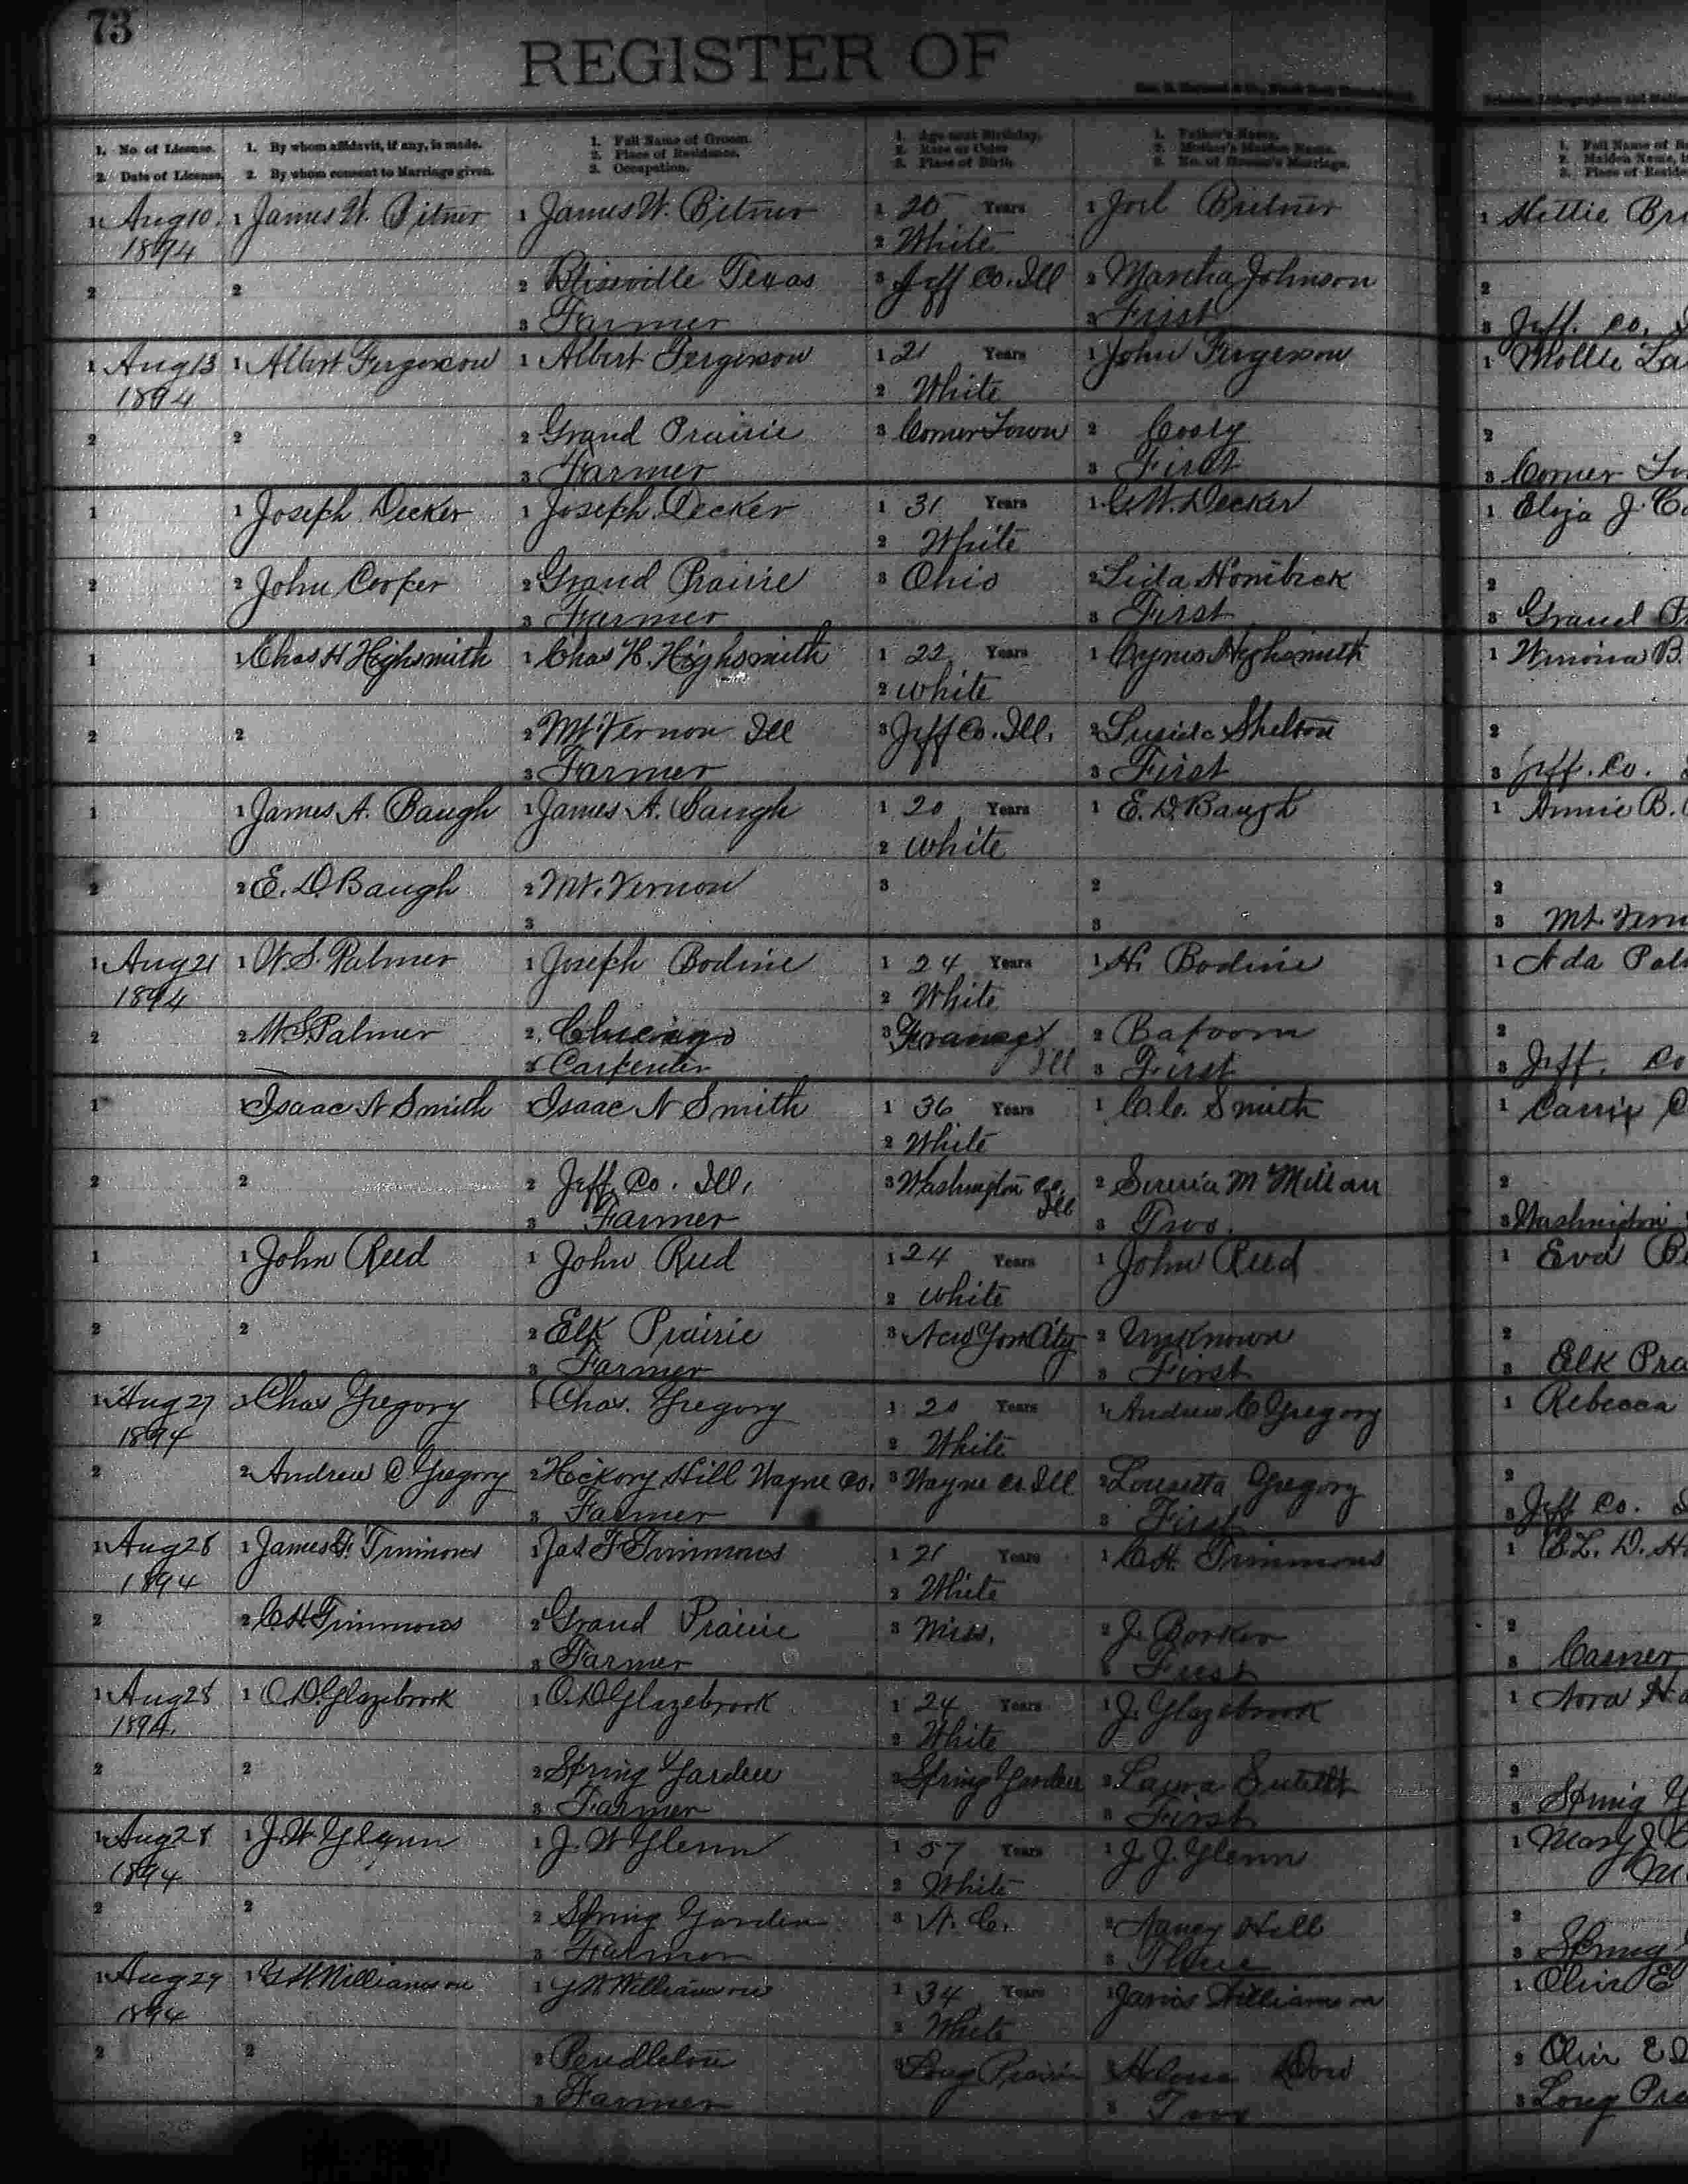 73
REGISTER OF
1. No. of License.
2. Date of License.
1. By whom affidavit, if any, is made.
2. By whom consent to Marriage given.
1. Full Name of Groom.
2. Place of Residence.
3. Occupation.
1. Age next Birthday.
2. Race or Color
3. Place of Birth
1. Father's Name.
2. Mother's Maiden Name.
3. No. of Groom's Marriage.
1. Full Name of
2. Maiden Name,
3. Place of Reside
1 Aug 10, 1 James W. Bitner 1 James W. Bitner 1 20 Years 1 Joel Britner 1 Hettie Bri
1894 2 White
2 2 2 Texas 3 Jeff Co. Ill 2 Martha Johnson 2
3 Farmer 3 First 3 Jeff. Co.
1 Aug 13 1 Albert Fergerson 1 Albert Fergerson 1 21 Years 1 John Fergerson 1 Mollie La
1894 2 White
2 2 2 Grand Prairie 3 Comer Town 2 2
3 Farmer 3 First 3 Comer To
1 1 Joseph Decker 1 Joseph Decker 1 31 Years 1 G W. Decker 1 Eliza J. Co
2 White
2 2 John Cooper 2 Grand Prairie 3 Ohio 2 2
3 Farmer 3 First 3 Grand P
1 1 Chas H Highsmith 1 Chas H. Highsmith 1 22 Years 1 Cyrus Highsmith 1 Winona B.
2 white
2 2 2 Mt. Vernon Ill 3 Jeff Co. Ill. 2 Shelton 2
3 Farmer 3 First 3 Jeff. Co.
1 1 James A. Baugh 1 James A. Baugh 1 20 Years 1 E. D. Baugh 1 Annie B.
2 white
2 2 E. D. Baugh 2 Mt. Vernon 3 2 2
3 3 3 Mt. Vern
1 Aug 21 1 W. S. Palmer 1 Joseph Bodine 1 24 Years 1 H. Bodine 1 Ada Pal
1894 2 White
2 2 W. S Palmer 2 Chicago 3 2 2
Ill
3 Carpenter 3 First 3 Jeff. Co
1 1 Isaac N Smith 1 Isaac N Smith 1 36 Years 1 C. C. Smith 1 Carrie C
2 White
2 2 2 Jeff Co. Ill. 3 Washington Co. Ill 2 McMillan 2
3 Farmer 3 Two. 3 Washington
1 1 John Reed 1 John Reed 1 24 Years 1 John Reed 1 Eva Be
2 white
2 2 2 Elk Prairie 3 New York City 2 Unknown 2
3 Farmer 3 First 3 Elk Pra
1 Aug 27 1 Chas Gregory 1 Chas. Gregory 1 20 Years 1 Andrew C Gregory 1 Rebecca
1894 2 White
2 2 Andrew C. Gregory 2 Hickory Hill Wayne Co. 3 Wayne Co. Ill 2 Gregory 2
3 Farmer 3 First 3 Jeff Co.
1 Aug 28 1 James F. Timmons 1 Jas F Timmons 1 21 Years 1 C H. Timmons 1
1894 2 White
2 2 C H Timmons 2 Grand Prairie 3 Miss. 2 J. 2
3 Farmer 3 First 3 Casner
1 Aug 28 1 O. D. Glazebrook 1 O. D Glazebrook 1 24 Years 1 J. Glazebrook 1 Nora Ha
1894. 2 White
2 2 2 Spring Garden 3 Spring Garden 2 Laura 2
3 Farmer 3 First 3 Spring G
1 Aug 28 1 J. W. Glenn 1 J. W Glenn 1 57 Years 1 J. J. Glenn 1 Mary J
1894 2 White
2 2 2 Spring Garden 3 N. C. 2 Nancy Hill 2
3 Farmer 3 Three 3 Spring
1 Aug 29 1 G W. Williamson 1 G W Williamson 1 34 Years 1 Williamson 1 Oliv E
1894 2 White
2 2 2 Pendleton 3 Long Prairie 2 Dow 2 Oliv E
3 Farmer 3 Two 3 Long Pra